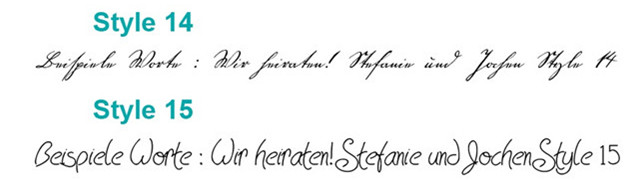 Style 14
Beispiele Worte : Wir heiraten! Stefanie und Jochen Style 14
Style 15
Beispiele Worte : Wir heiraten! Stefanie und Jochen Style 15